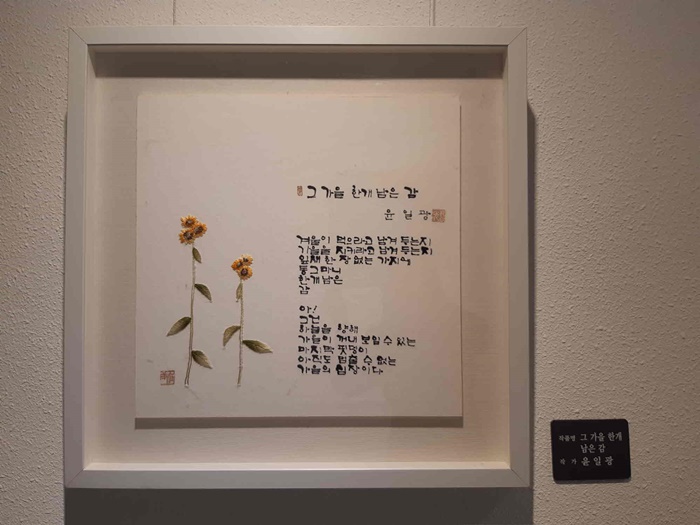 그 가을 한개 남은 감
윤 일 광
겨울이 먹으라고 남겨 뒀는지
가을을 지키라고 남겨 뒀는지
잎새 한 장 없는 가지에
동그마니
한개 남은
감
아!
그건
하늘을 향해
가을이 겨녀 보일 수 없는
마지막 핏멍이
아직도 멈출 수 없는
가을의 심장이다
작품명 그 가을 한개
남은 감
작 가 윤 일 광